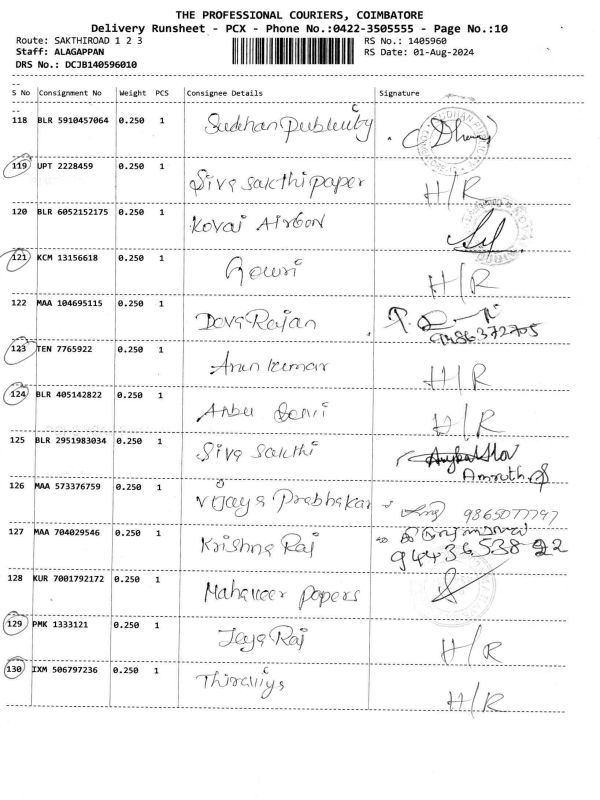 THE PROFESSIONAL COURIERS, COIMBATORE
Delivery Runsheet - PCX - Phone No.:0422-3505555 - Page No.:10
Route: SAKTHIROAD 1 2 3
RS No.: 1405960
Staff: ALAGAPPAN
RS Date: 01-Aug-2024
DRS No.: DCJB140596010
S No Consignment No Weight PCS Consignee Details Signature
118 BLR 5910457064 0.250 1 Sudhan
119 UPT 2228459 0.250 1 Siva sakthi paper H/R
120 BLR 6052152175 0.250 1 Kovai
121 KCM 13156618 0.250 1 Gowri H/R
122 MAA 104695115 0.250 1 Deva Rajan
9486372705
123 TEN 7765922 0.250 1 Arun kumar H/R
124 BLR 405142822 0.250 1 Anbu H/R
125 BLR 2951983034 0.250 1 Siva sakthi
126 MAA 573376759 0.250 1 Vijaya Prabhakar 9865077797
127 MAA 704029546 0.250 1 Krishna Raj
128 KUR 7001792172 0.250 1 Mahaveer papers
129 PMK 1333121 0.250 1 Jaya Raj H/R
130 IXM 506797236 0.250 1 H/R